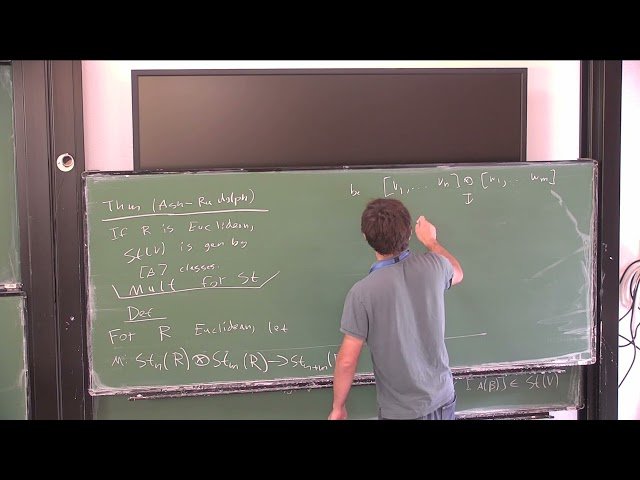 Thm (Ash-Rudolph)
If R is Euclidean,
St(V) is gen by
[A] classes.
Mult for St
Def
For R Euclidean, let
M: St_n(R) ⊗ St_m(R) → St_{n+m}(
be [v_1, ... v_n] ⊗ [w_1, ... w_m]
∈ St(V)